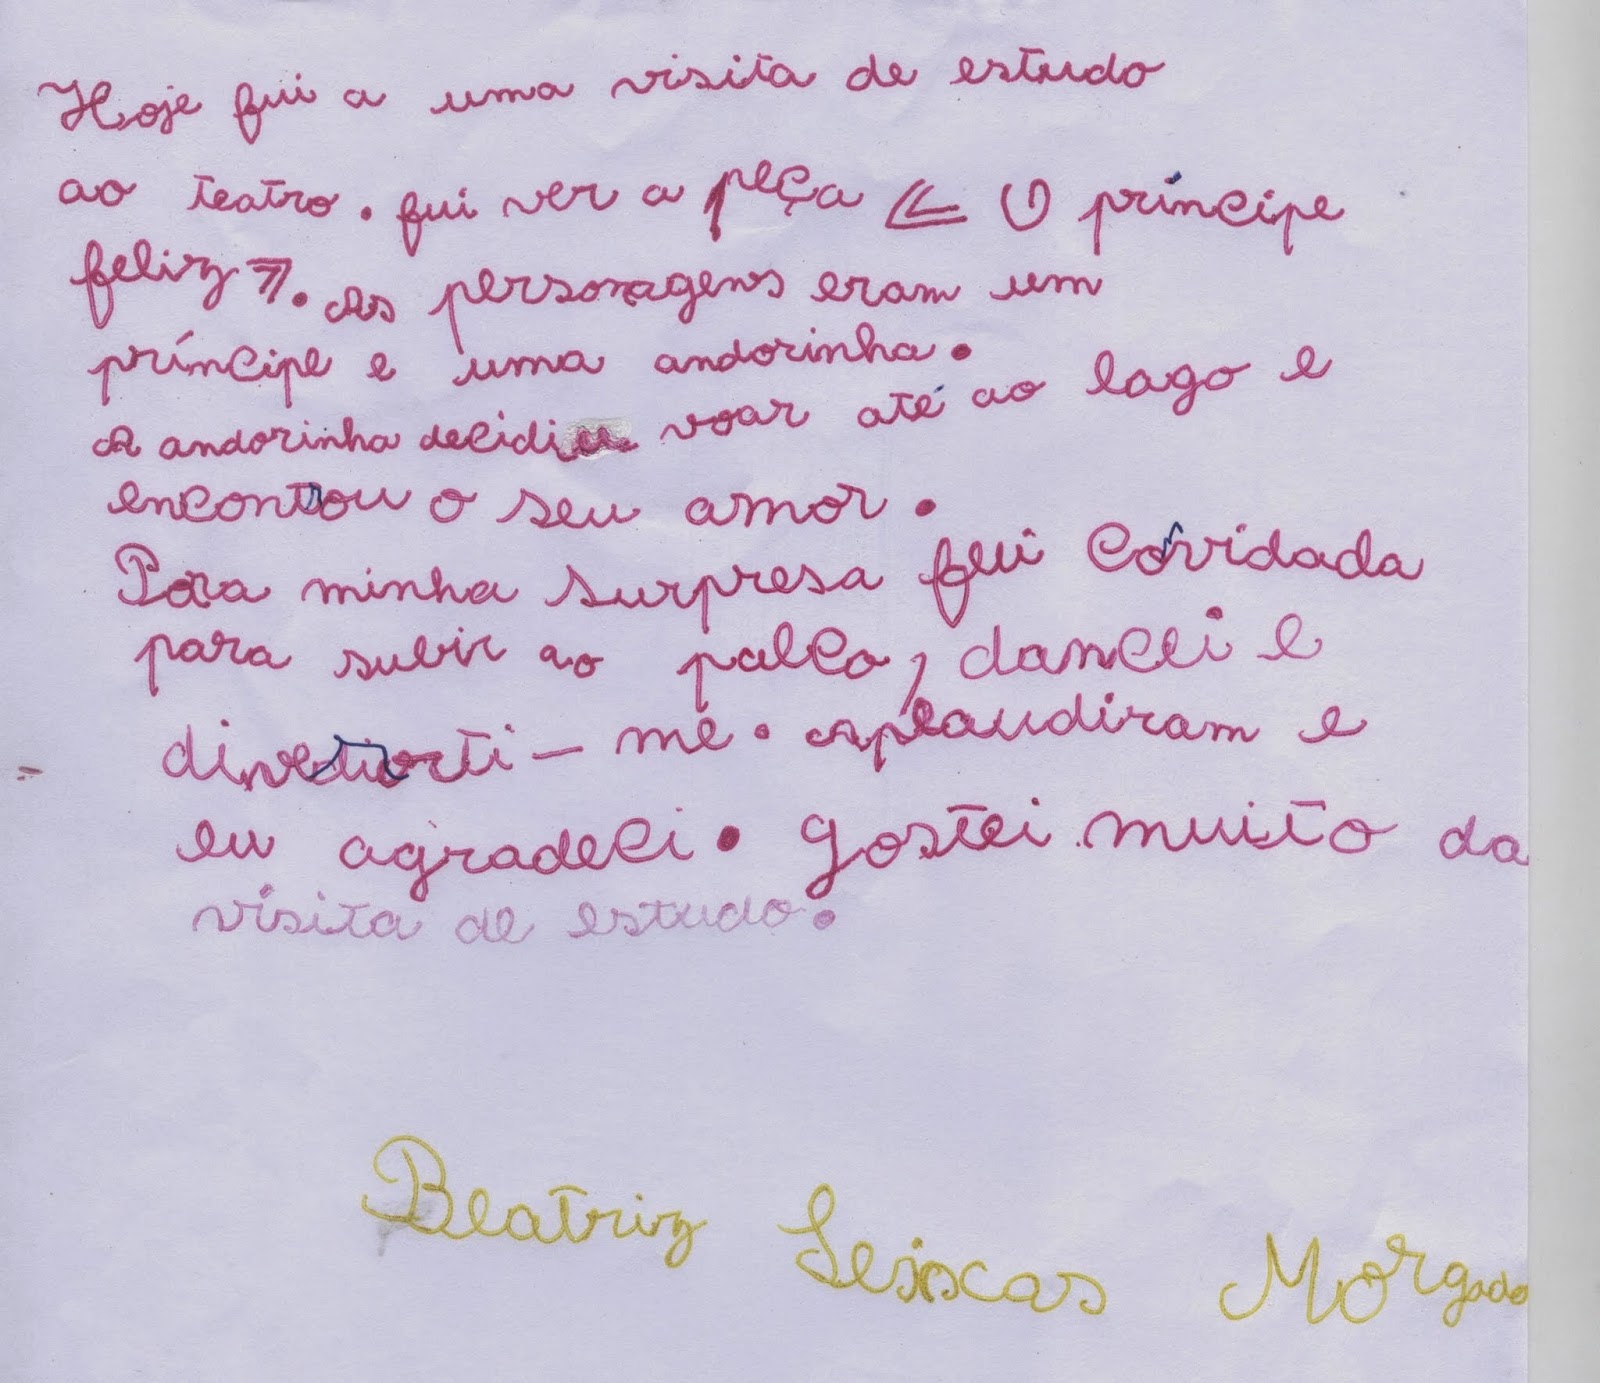 Hoje fui a uma visita de estudo
ao teatro. fui ver a peça « O príncipe
feliz ». As personagens eram um
príncipe e uma andorinha.
A andorinha decidiu voar até ao lago e
encontrou o seu amor.
Para minha surpresa fui convidada
para subir ao palco, dancei e
diverti-me. Aplaudiram e
eu agradeci. gostei muito da
visita de estudo.
Beatriz Seixas Morgado